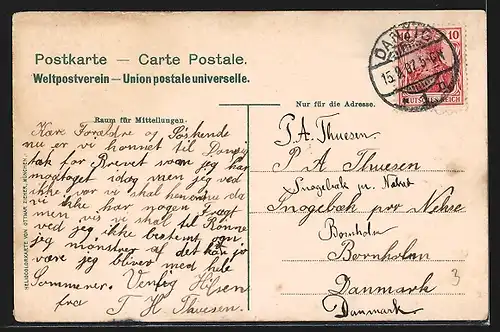 Postkarte — Carte Postale.
Weltpostverein — Union postale universelle.
Raum für Mitteilungen.
Kære Forældre og Søskende
nu er vi kommet til Danzig
tak for Brevet som jeg har
modtaget idag men jeg ved
ikke vor vi skal hen enda
vi ikke har nogen Fragt
men vis vi skal til Rønne
ved jeg ikke bestemt om
jeg mønstrer af det kan jo
være jeg bliver med hele
Sommeren. Venlig Hilsen
fra
T H Thuesen.
Nur für die Adresse.
P. A. Thuesen.
P A Thuesen
Snogebæk pr. Nexø
Snogebæk per Nekse
Bornholm
Bornholm
Danmark
Danmark
3
DANZIG
10
DEUTSCHES REICH
HELIOCOLORKARTE VON OTTMAR ZIEHER, MÜNCHEN